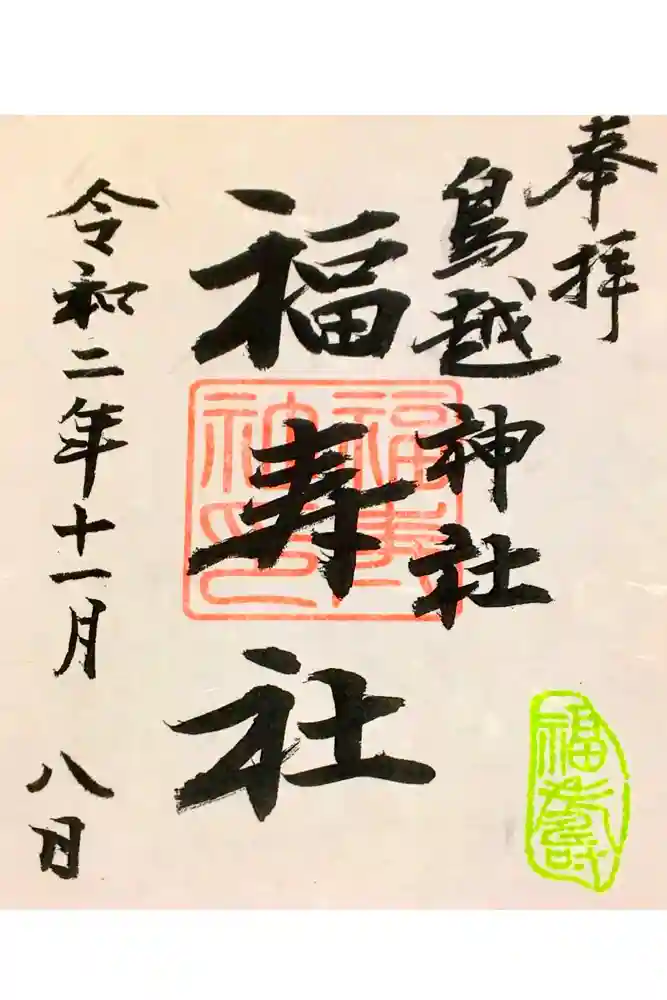 奉拝
鳥越神社
福寿社
令和二年十一月 八日
福寿